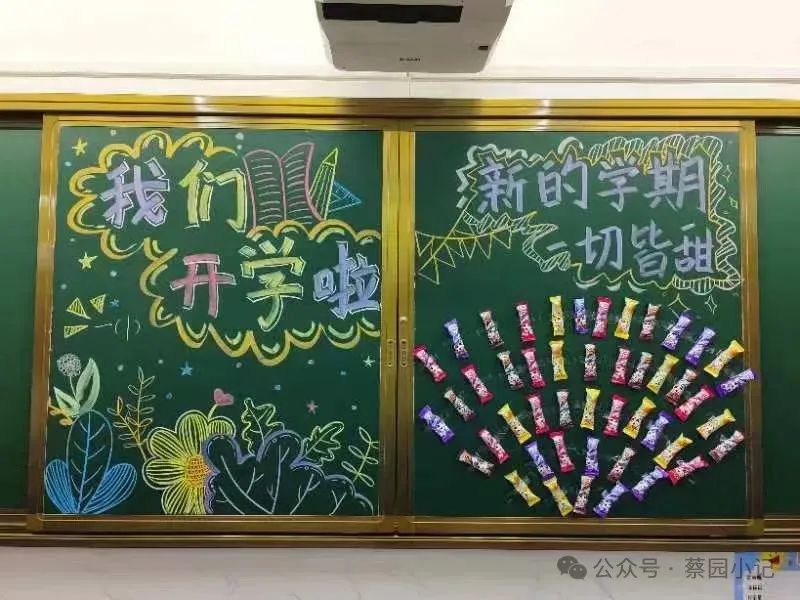 我们
开学啦
一(一)
新的学期
一切皆甜
公众号·蔡园小记